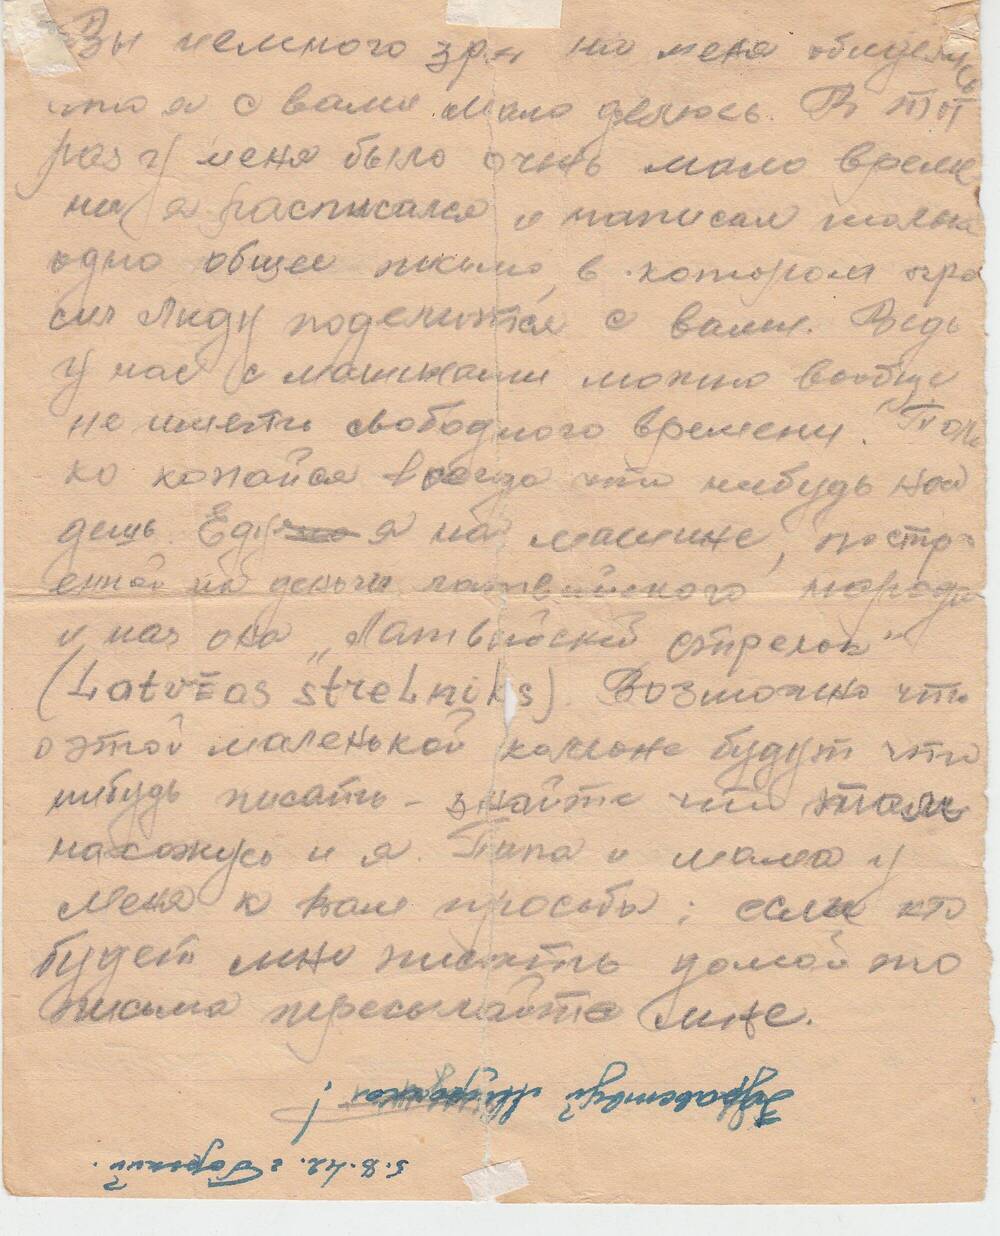 Вы немного зря на меня обиделись
что я с вами мало делюсь. В тот
раз у меня было очень мало време
ни (я расписался и написал только
одно общее письмо, в котором про
сил Люду поделится с вами. Ведь
у нас с машинами можно вообще
не иметь свободного времени. Толь
ко копайся всегда что нибудь най
дешь. Еду я на машине, постро
енной на деньги латвийского народа
и наз она „Латвийский стрелок"
(Latvēas strelniks). Возможно что
о этой маленькой колоне будут что
нибудь писать - знайте что там
нахожусь и я. Папа и мама у
меня к вам просьба; если кто
будет мне писать домой то
письма пересылайте мне.
Здравствуй !
5.8.42. г Горький.